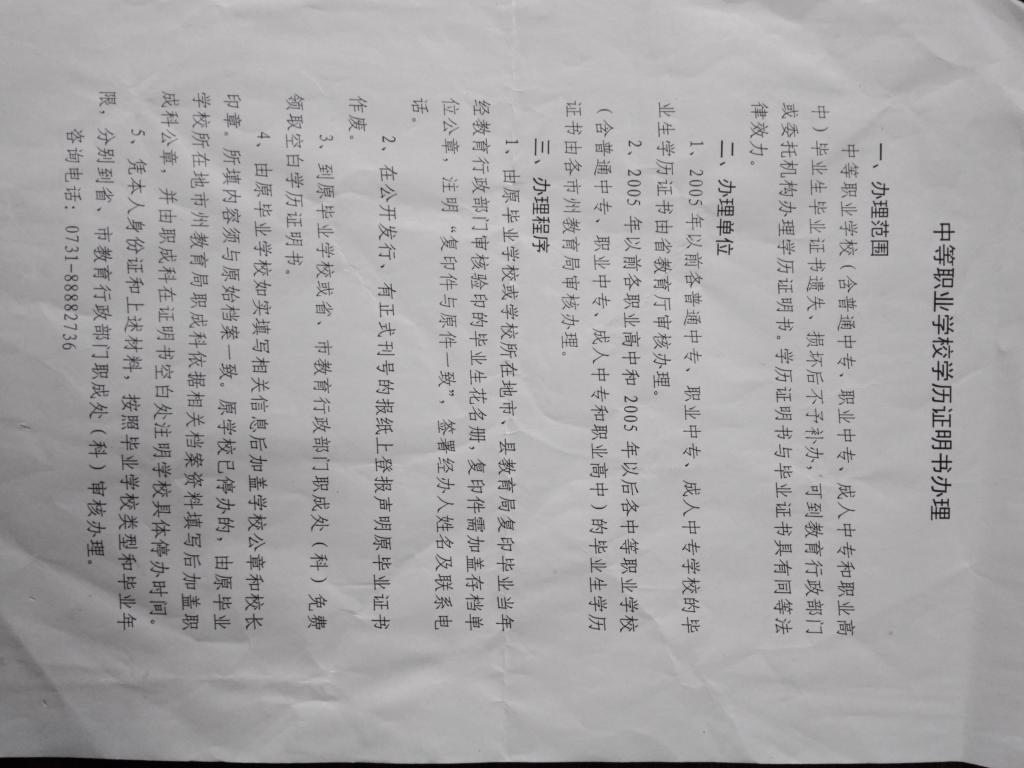 中等职业学校学历证明书办理
一、办理范围
中等职业学校（含普通中专、职业中专、成人中专和职业高
中）毕业生毕业证书遗失、损坏后不予补办，可到教育行政部门
或委托机构办理学历证明书。学历证明书与毕业证书具有同等法
律效力。
二、办理单位
1、2005 年以前各普通中专、职业中专、成人中专学校的毕
业生学历证书由省教育厅审核办理。
2、2005 年以前各职业高中和 2005 年以后各中等职业学校
（含普通中专、职业中专、成人中专和职业高中）的毕业生学历
证书由各市州教育局审核办理。
三、办理程序
1、由原毕业学校或学校所在地市、县教育局复印毕业当年
经教育行政部门审核验印的毕业生花名册，复印件需加盖存档单
位公章，注明“复印件与原件一致”，签署经办人姓名及联系电
话。
2、在公开发行、有正式刊号的报纸上登报声明原毕业证书
作废。
3、到原毕业学校或省、市教育行政部门职成处（科）免费
领取空白学历证明书。
4、由原毕业学校如实填写相关信息后加盖学校公章和校长
印章。所填内容须与原始档案一致。原学校已停办的，由原毕业
学校所在地市州教育局职成科依据相关档案资料填写后加盖职
成科公章，并由职成科在证明书空白处注明学校具体停办时间。
5、凭本人身份证和上述材料，按照毕业学校类型和毕业年
限，分别到省、市教育行政部门职成处（科）审核办理。
咨询电话：0731-88882736